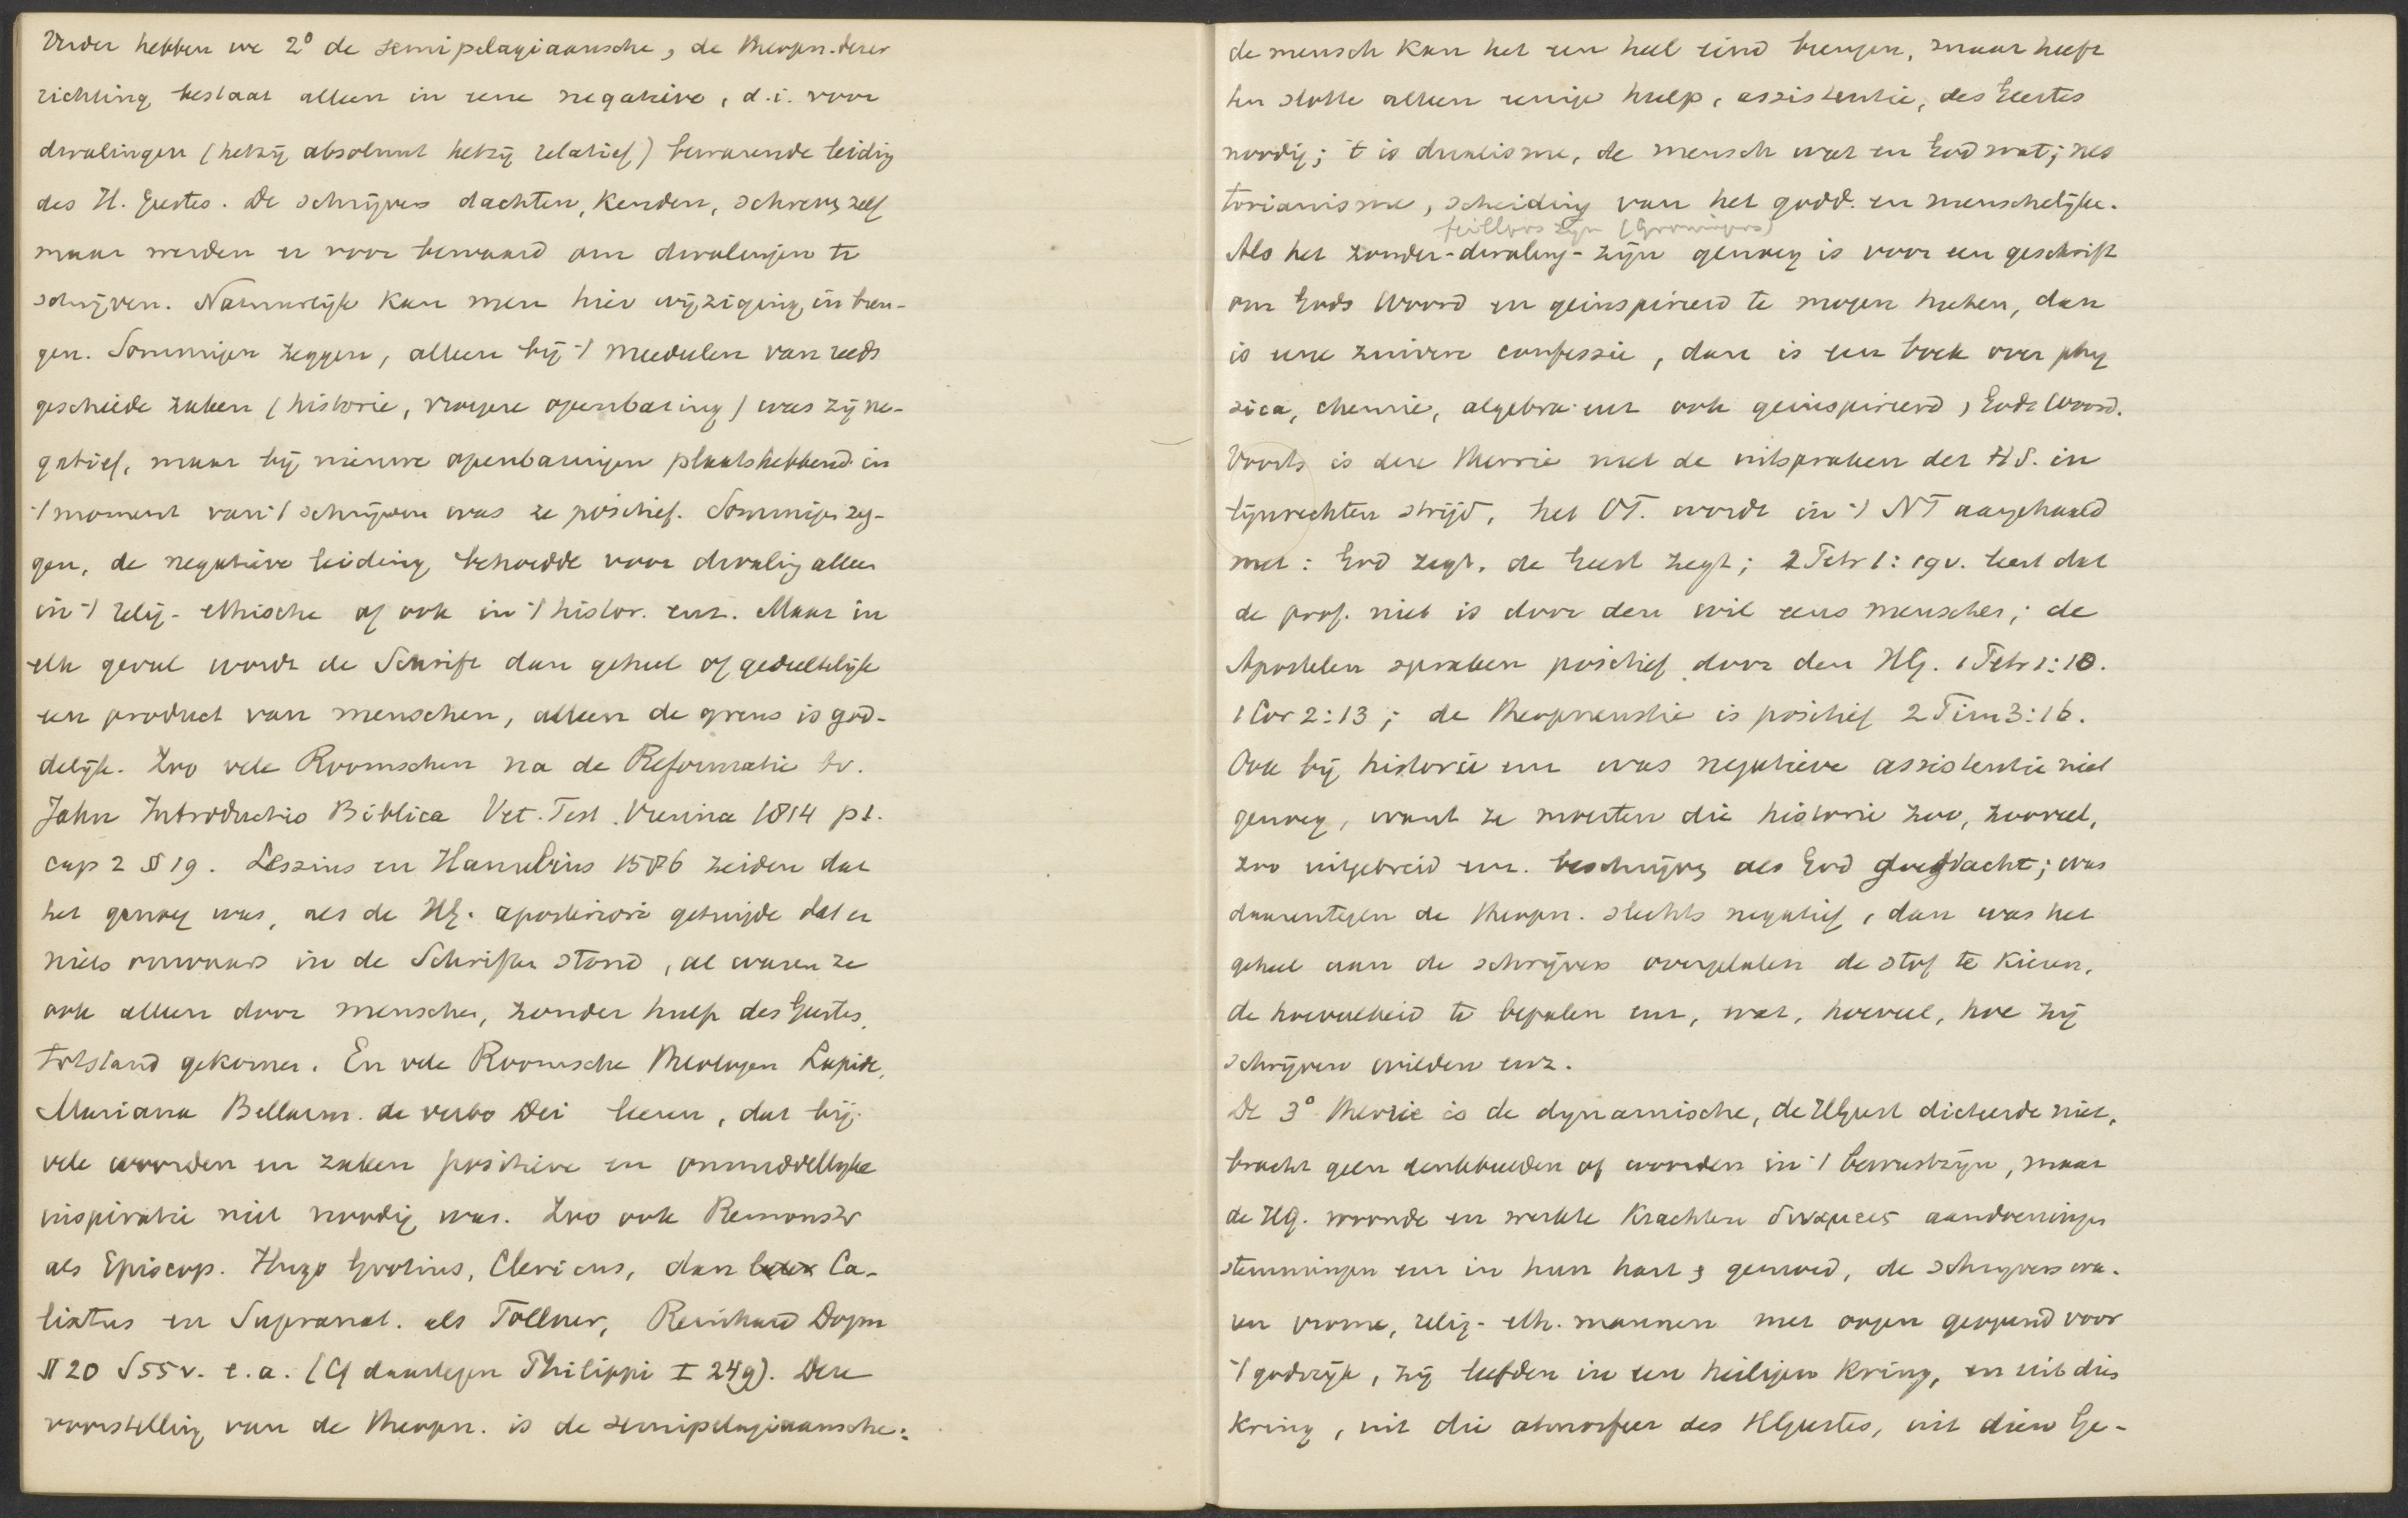 Verder hebben we 2° de semipelagiaansche, de theopn. dezer
richting bestaat alleen in eene negatieve, d.i. voor
dwalingen (hetzij absoluut hetzij relatief) bewarende leiding
des H. Geestes. De schrijvers dachten, kenden, schreven zelf
maar werden er voor bewaard om dwalingen te
schrijven. Natuurlijk kan men hier wijziging in bren-
gen. Sommigen zeggen, alleen bij 't meedeelen van reeds
geschiede zaken (historie, vroegere openbaring) was zij ne-
gatief, maar bij nieuwe openbaringen plaatshebbend in
't moment van 't schrijven was ze positief. Sommigen zeg-
gen, de negatieve leiding behoedde voor dwaling alleen
in 't relig-ethische of ook in 't histor. enz. Maar in
elk geval wordt de Schrift dan geheel of gedeeltelijk
een product van menschen, alleen de grens is god-
delijk. Zoo vele Roomschen na de Reformatie bv.
Jahn Introductio Biblica Vet. Test. Vienna 1814 p1.
cap 2 § 19. Lessius en Hamelius 1586 zeiden dat
het genoeg was, als de HG. aposteriori getuigde dat er
niets onwaars in de Schriften stond, al waren ze
ook alleen door menschen, zonder hulp des Geestes,
totstand gekomen. En vele Roomsche theologen Lapide,
Mariana Bellarm. de verbo Dei leeren, dat bij
vele woorden en zaken positieve en onmiddellijke
inspiratie niet noodig was. Zoo ook Remonstr
als Episcop. Hugo Grotius, Clericus, dan Ca-
lixtus en Supranat. als Töllner, Reinhard Dogm
§ 20 S 55 v. e.a. (Cf daartegen Philippi I 249). Deze
voorstelling van de theopn. is de semipelagiaansche:
de mensch kan het een heel eind brengen, maar heeft
ten slotte alleen eenige hulp, assistentie, des Geestes
noodig; 't is dualisme, de mensch wat en God wat; nes
torianisme, scheiding van het godd. en menschelijke.
feilloos zijn (Groningers)
Als het zonder-dwaling-zijn genoeg is voor een geschrift
om Gods Woord en geinspireerd te mogen heeten, dan
is eene zuivere confessie, dan is een boek over phy
sica, chemie, algebra enz ook geinspireerd, Gods Woord.
Voorts is deze theorie met de uitspraken der H S. in
lijnrechten strijd, het OT. wordt in 't NT aangehaald
met: God zegt, de Geest zegt; 2 Petr 1:19v. leert dat
de prof. niet is door den wil eens menschen; de
Apostelen spraken positief door den HG. 1 Petr 1:10.
1 Cor 2:13; de theopneustie is positief 2 Tim 3:16.
Ook bij historie enz was negatieve assistentie niet
genoeg, want ze moesten die historie zoo, zooveel,
zoo uitgebreid enz. beschrijven als God dacht; was
daarentegen de theopn. slechts negatief, dan was het
geheel aan de schrijvers overgelaten de stof te kiezen,
de hoeveelheid te bepalen enz, wat, hoeveel, hoe zij
schrijven wilden enz.
De 3° theorie is de dynamische, de HGeest dicteerde niet,
bracht geen denkbeelden of woorden in 't bewustzijn, maar
de HG. woonde en werkte krachten δυναμεις aandoeningen
stemmingen enz in hun hart & gemoed, de schrijvers wa-
ren vrome, relig-eth. mannen met oogen geopend voor
't godrijk, zij leefden in een heiligen kring, en uit dien
kring, uit die atmosfeer des HGeestes, uit dien Ge-